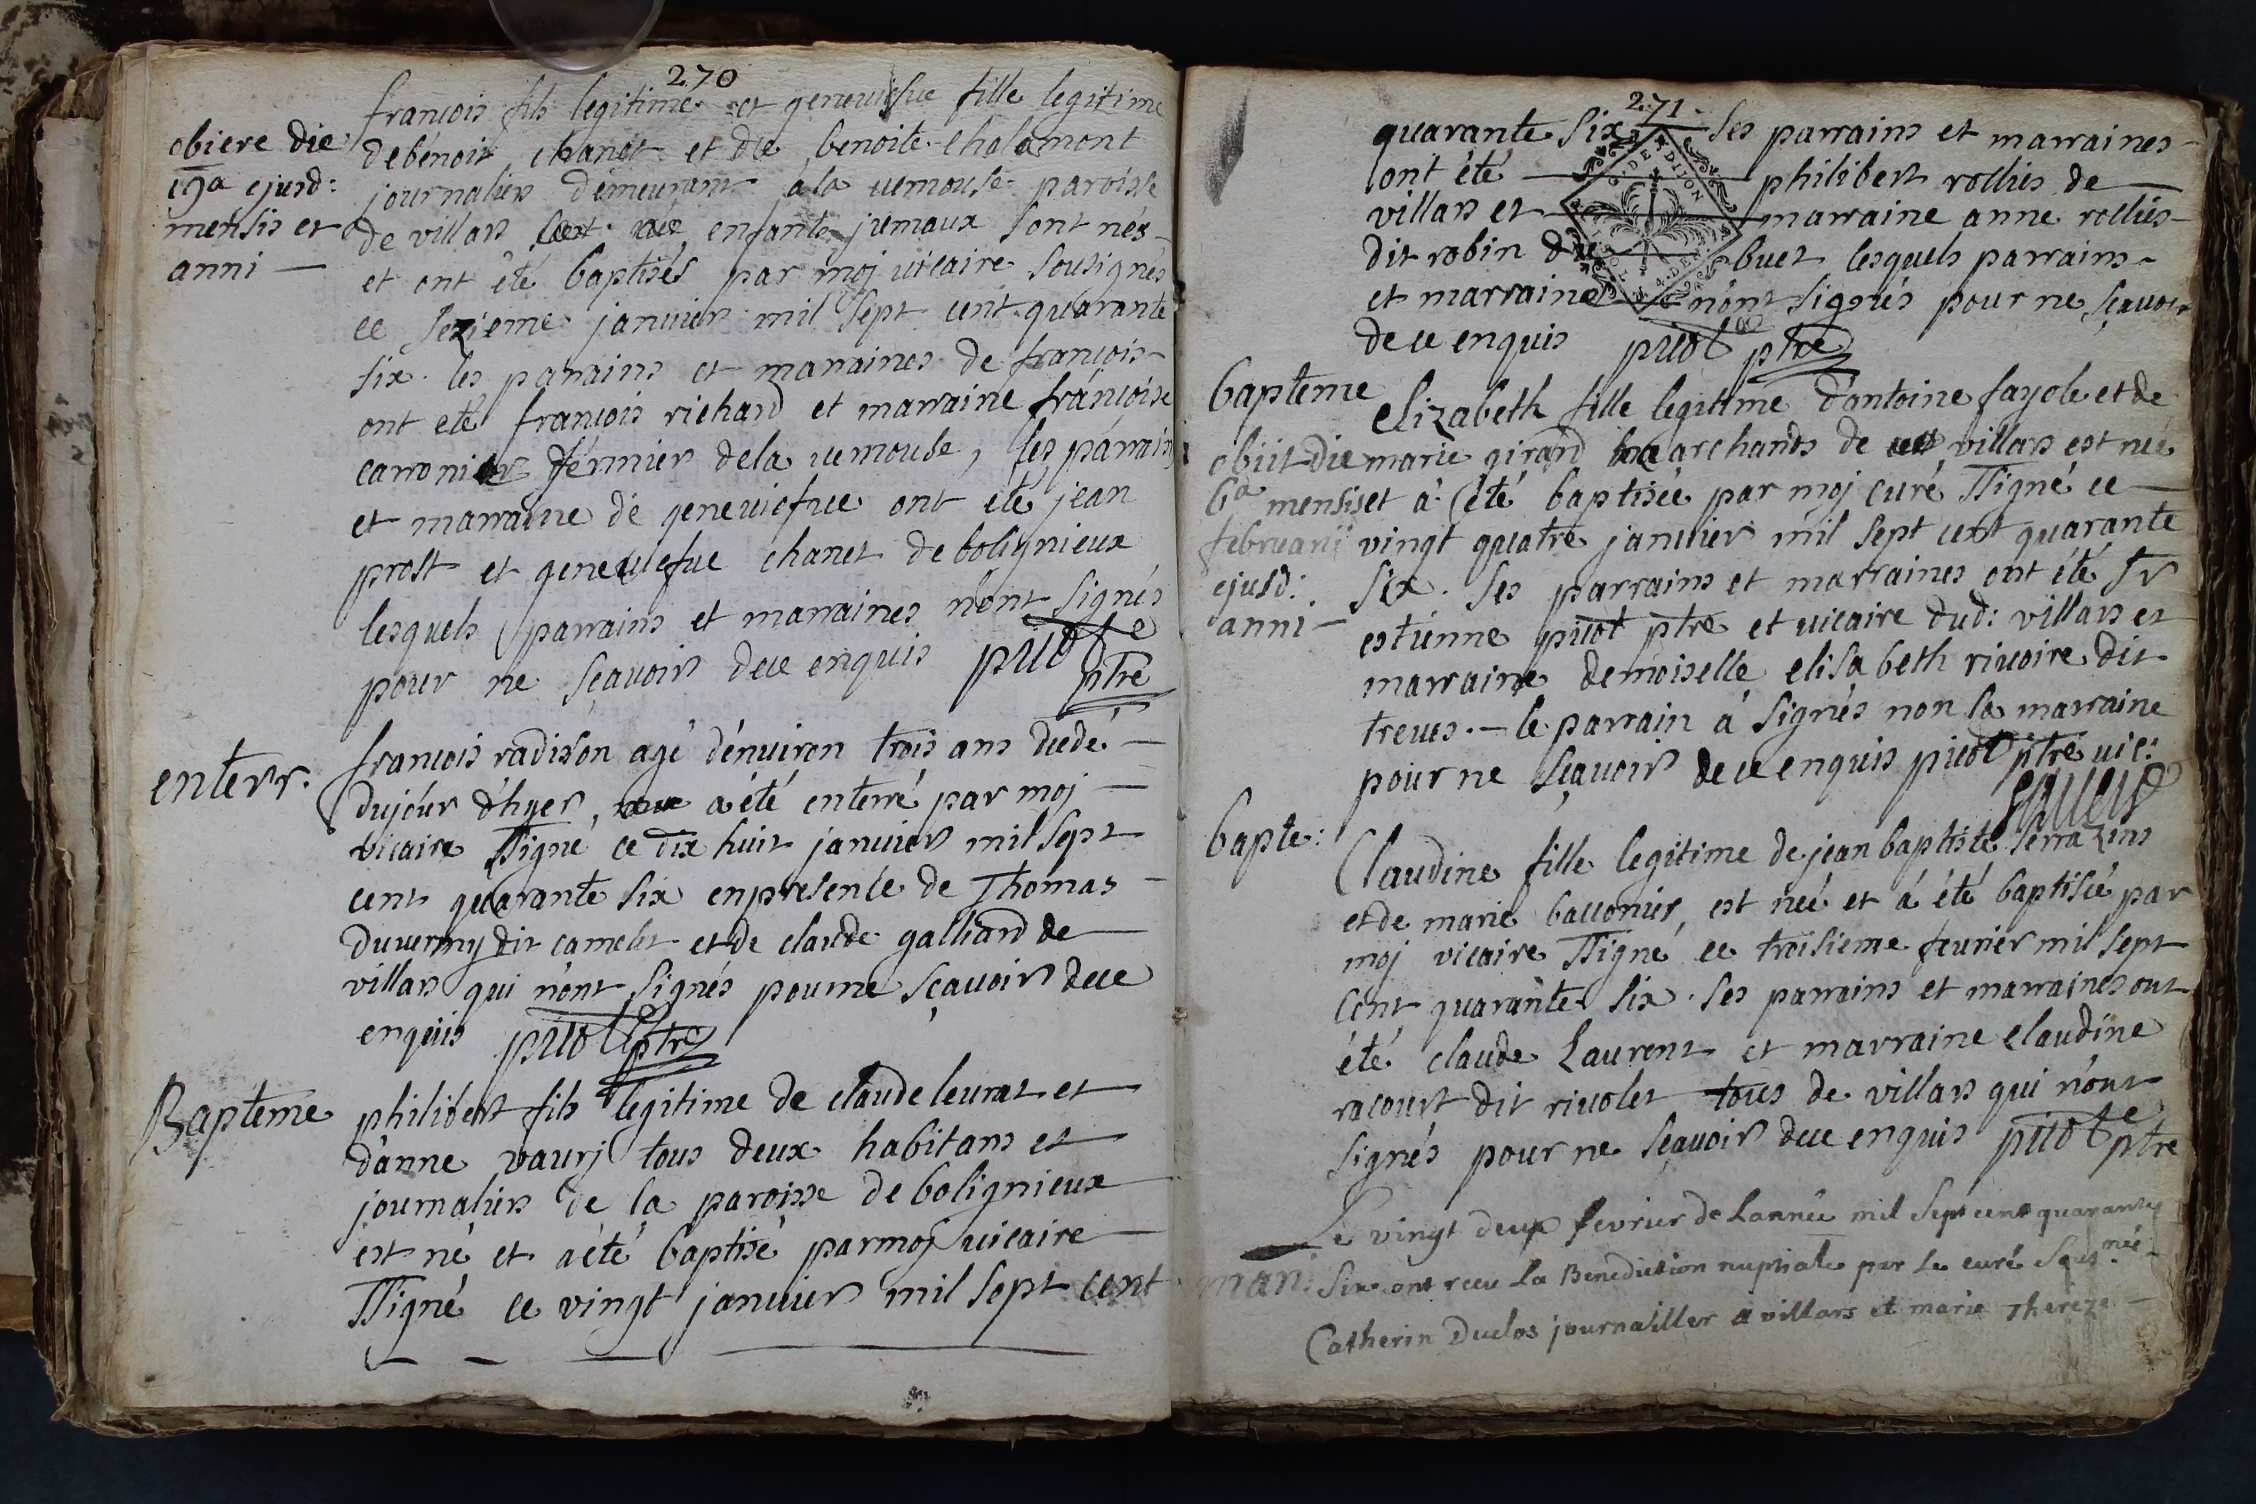 270
françois fils legitime et geneviefve fille legitime
debénoit chanet et de benoite chalamont
journaliers demeurant a la vernouse paroisse
de villars enfants jumaux sont nés
et ont été baptisés par moj vicaire sousignés
ce sezieme janvier mil sept cent quarante
six. les parains et maraines de françois
ont eté françois richard et marraine françoise
carronier férmier dela vernouse, les parrains
et marraine de geneviefve ont été jean
prost et geneviefve chanet de bolignieux
lesquels parrains et marraines n'ont signés
pour ne sçavoir dece enquis picot
ptre
obiere die
19a ejusd:
mensis et
anni
enterr.
françois radison agé dénviron trois ans decdé
dujour d'hyer, a été enterré par moj
vicaire ssigné ce dix huit janvier mil sept
cent quarante six enpresence de Thomas
duverny dit camelet et de claude galliard de
villars qui n'ont signés pourne sçavoir dece
enquis picot ptre
Baptême
philibert fils legitime de claude levrat et
d'anne vaurj tous deux habitans et
journaliers de la paroisse de bolignieux
est né et a été baptisé par moj vicaire
ssigné ce vingt janvier mil sept cent
271
quarante six ses parrains et marraines
ont été philibert rollies de
villars et marraine anne rollies
dit robin de buet lesquels parrains
et marraine n'ont signés pour ne sçavoir
de ce enquis picot ptre
G. DE DIJON
baptême
elizabeth fille legitime d'antoine fayole et de
marie girard marchands de villars est née
et à été baptisée par moj curé ssigné ce
vingt quatre janvier mil sept cent quarante
six. ses parrains et marraines ont été sr
estienne picot ptre et vicaire dud: villars et
marraine demoiselle elisabeth rivoire dit
treves. le parrain à signés non la marraine
pour ne sçavoir de ce enquis picot ptre vic:
obiit die
6a mensis
februarii
ejusd:
anni
bapte:
Claudine fille legitime de jean baptiste serrazins
et de marie bacconier, est née et á été baptisée par
moj vicaire ssigné ce troisieme fevrier mil sept
cent quarante six. ses parrains et marraines ont
été claude Laurent et marraine claudine
racourt dit rivolet tous de villars qui n'ont
signés pour ne sçavoir de ce enquis picot ptre
Le vingt deux fevrier de Lannée mil sept cent quarante
mari:
six ont receu La Benediction nuptiale par Le curé sousné
Catherin Duclos journaillier a villars et marie Thereze